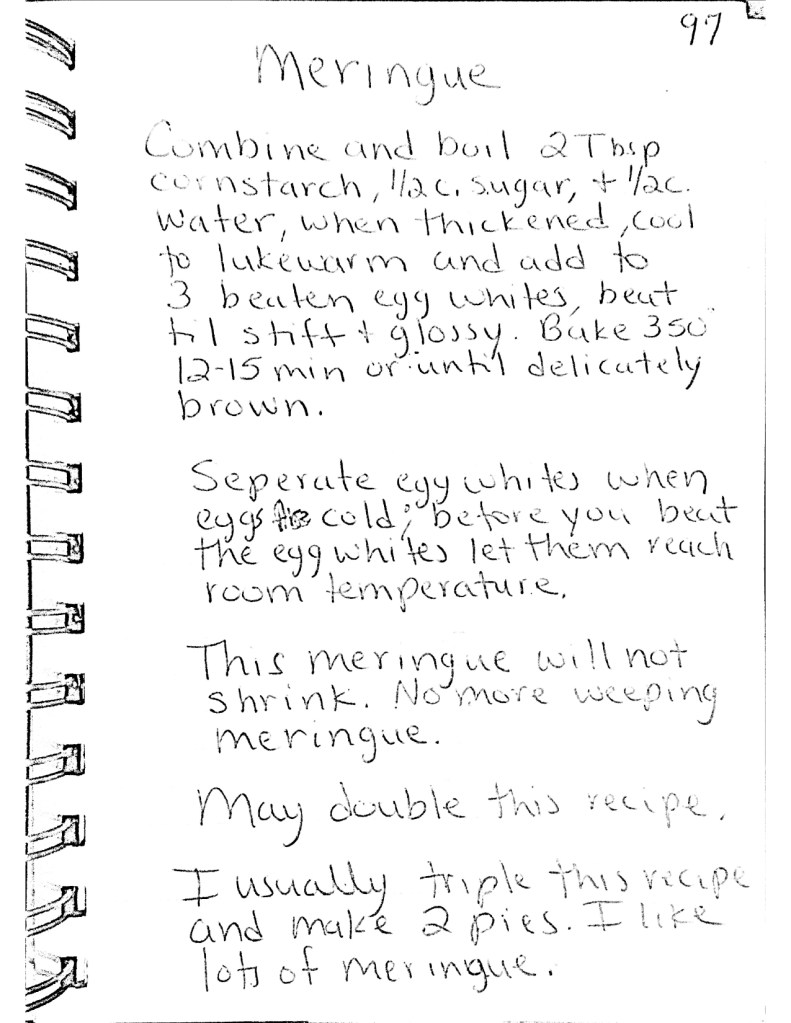 97
Meringue
Combine and boil 2 Tbsp
cornstarch, 1/2 c. sugar, + 1/2 c.
water, when thickened, cool
to lukewarm and add to
3 beaten egg whites, beat
til stiff + glossy. Bake 350°
12-15 min or until delicately
brown.
Seperate egg whites when
eggs are cold; before you beat
the egg whites let them reach
room temperature.
This meringue will not
shrink. No more weeping
meringue.
May double this recipe.
I usually triple this recipe
and make 2 pies. I like
lots of meringue.